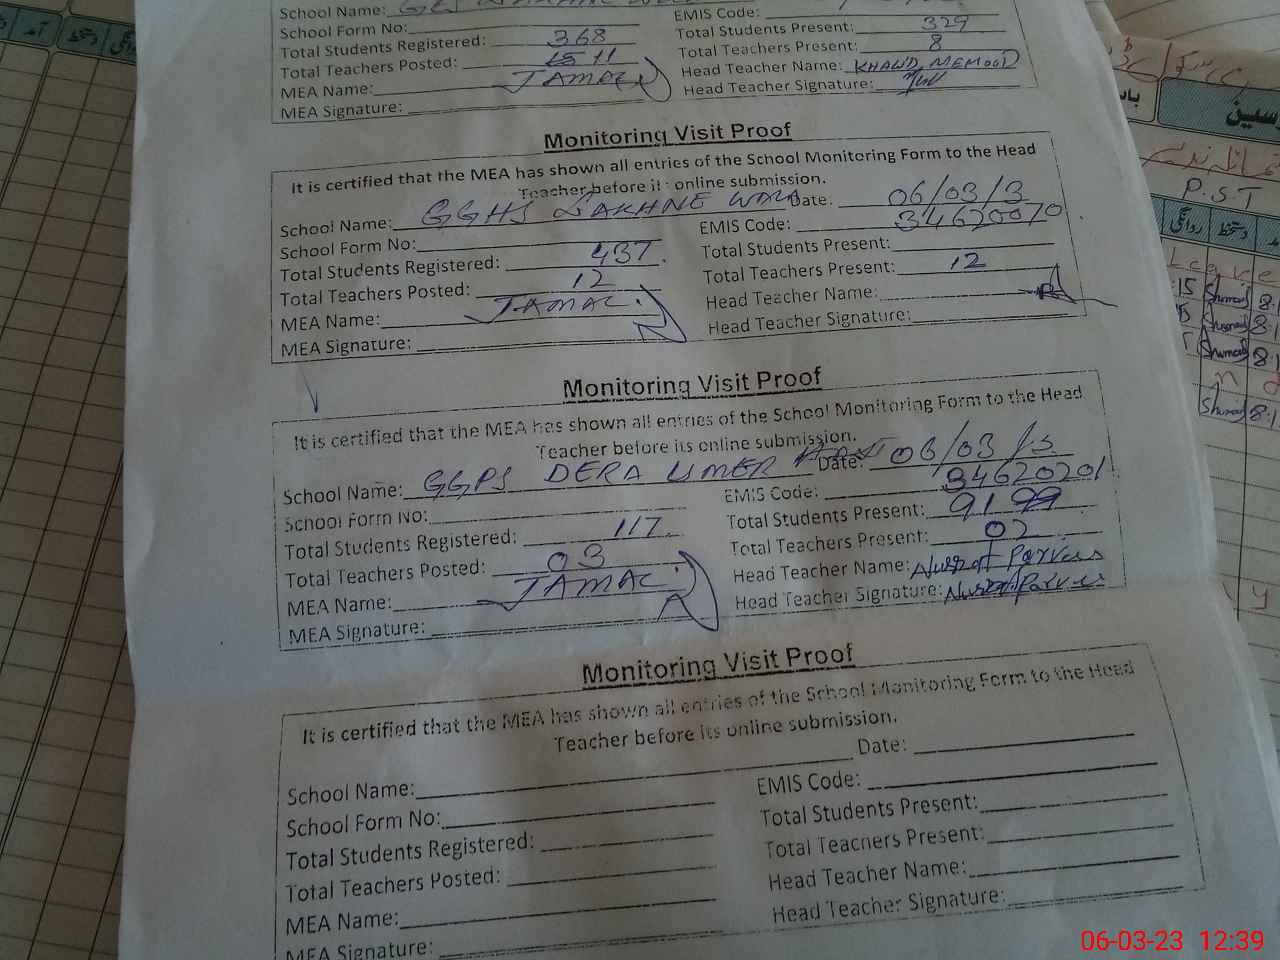 School Name:
EMIS Code:
School Form No:
Total Students Present: 329
Total Students Registered: 368
Total Teachers Present: 8
Total Teachers Posted: 11
Head Teacher Name: KHALID MEMOOD
MEA Name: JAMAL
Head Teacher Signature:
MEA Signature:
Monitoring Visit Proof
It is certified that the MEA has shown all entries of the School Monitoring Form to the Head
Teacher before it online submission.
School Name: GGHS LAKHNE WALA Date: 06/03/3
School Form No: EMIS Code: 34620070
Total Students Registered: 437 Total Students Present:
Total Teachers Posted: 12 Total Teachers Present: 12
MEA Name: JAMAL Head Teacher Name:
MEA Signature: Head Teacher Signature:
Monitoring Visit Proof
It is certified that the MEA has shown all entries of the School Monitoring Form to the Head
Teacher before its online submission.
School Name: GGPS DERA UMER Date: 06/03/
School Form No: EMIS Code: 34620201
Total Students Registered: 117 Total Students Present: 91 99
Total Teachers Posted: 03 Total Teachers Present: 02
MEA Name: JAMAL Head Teacher Name: Nusrat Parveen
MEA Signature: Head Teacher Signature: Nusrat Parveen
Monitoring Visit Proof
It is certified that the MEA has shown all entries of the School Monitoring Form to the Head
Teacher before its online submission.
School Name: Date:
School Form No: EMIS Code:
Total Students Registered: Total Students Present:
Total Teachers Posted: Total Teachers Present:
MEA Name: Head Teacher Name:
MEA Signature: Head Teacher Signature:
P.S.T
روانگی دستخط
Leave
06-03-23 12:39